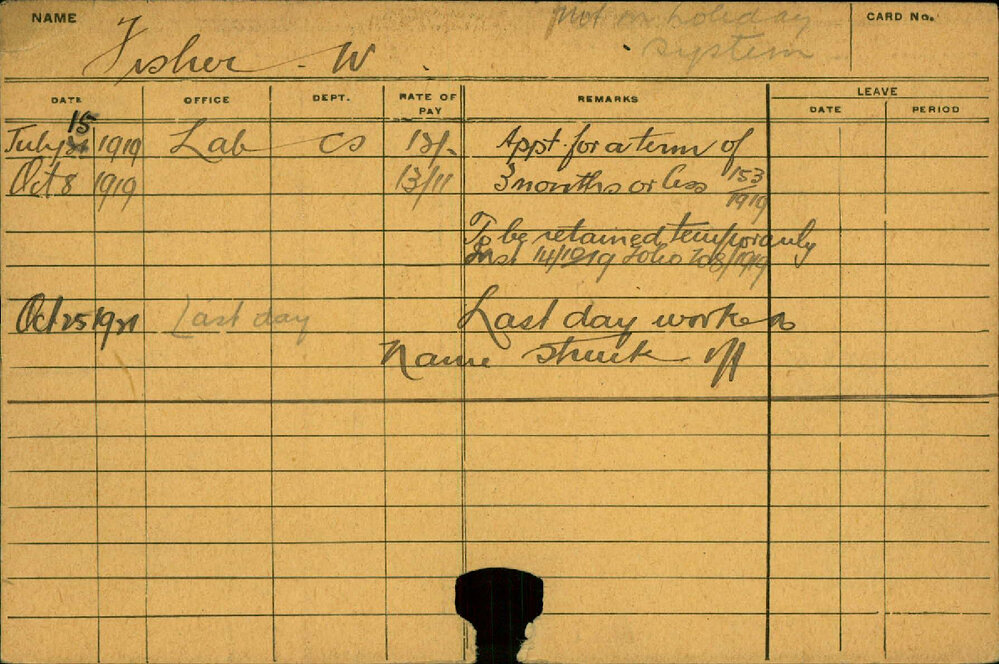 NAME
Fisher W
Not on holiday
system
CARD No.
DATE OFFICE DEPT. RATE OF PAY REMARKS LEAVE
DATE PERIOD
July 15 1919 Lab CS 12/- Appt. for a term of
Oct 8 1919 13/11 3 months or less 153/1919
To be retained temporarily
Inst 14/10/19 Folio 208/1919
Oct 25 1921 Last day Last day worked
Name struck off